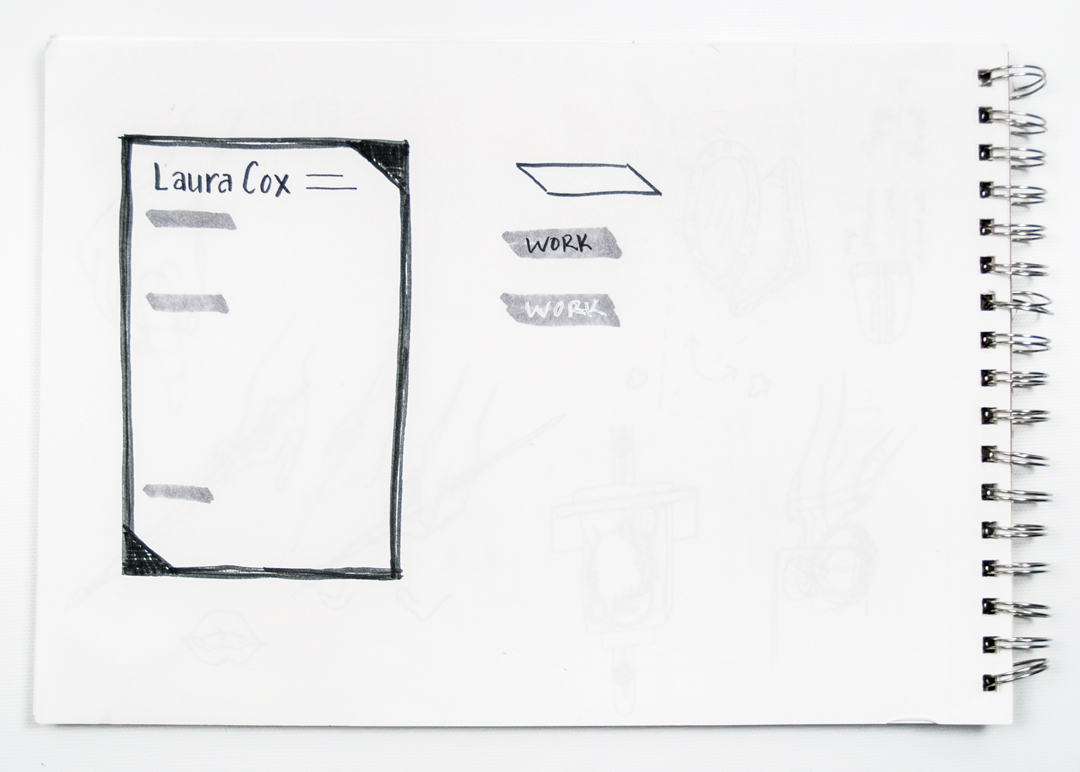 Laura Cox
WORK
WORK